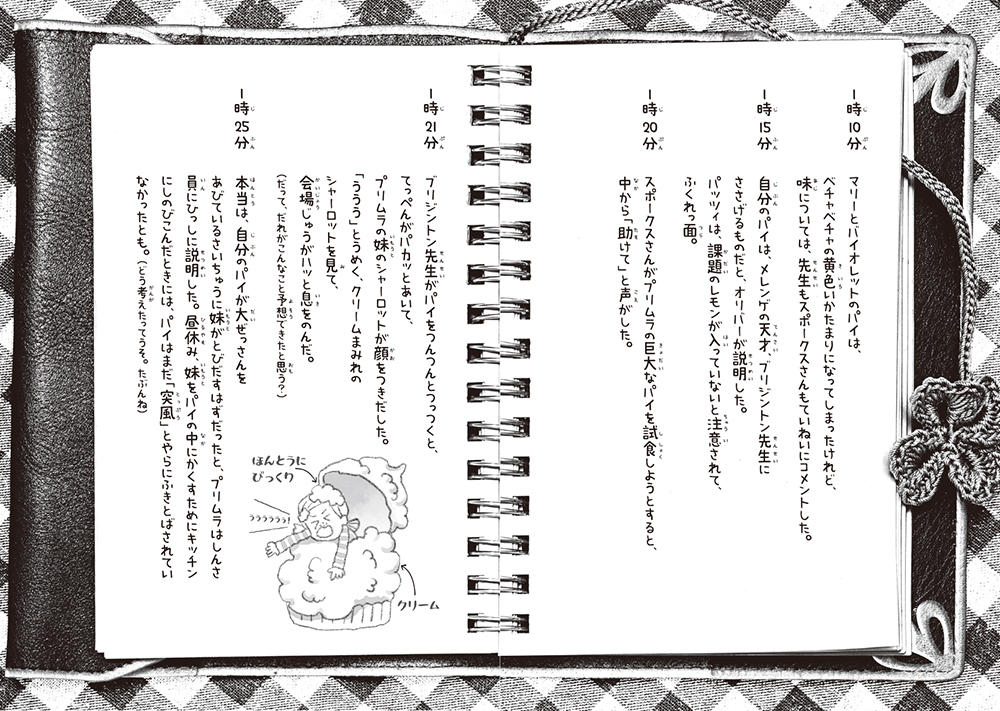 一時10分
マリーとバイオレットのパイは、
ベチャベチャの黄色いかたまりになってしまったけれど、
味については、先生もスポークスさんもていねいにコメントした。
一時15分
自分のパイは、メレンゲの天才、ブリジントン先生に
ささげるものだと、オリバーが説明した。
パッツィは、課題のレモンが入っていないと注意されて、
ふくれっ面。
一時20分
スポークスさんがプリムラの巨大なパイを試食しようとすると、
中から「助けて」と声がした。
一時21分
ブリジントン先生がパイをつんつんとつっつくと、
てっぺんがパカッとあいて、
プリムラの妹のシャーロットが顔をつきだした。
「ううう」とうめく、クリームまみれの
シャーロットを見て、
会場じゅうがハッと息をのんだ。
（だって、だれがこんなこと予想できたと思う？）
一時25分
本当は、自分のパイが大ぜっさんを
あびているさいちゅうに妹がとびだすはずだったと、プリムラはしんさ
員にひっしに説明した。昼休み、妹をパイの中にかくすためにキッチン
にしのびこんだときには、パイはまだ「突風」とやらにふきとばされてい
なかったとも。（どう考えたってうそ。たぶんね）
ほんとうに
びっくり
うううううう！
クリーム